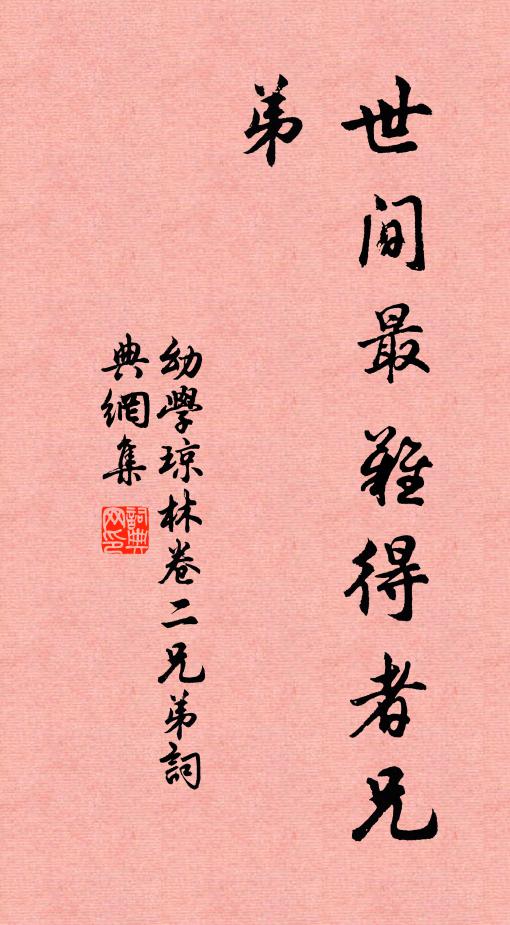 世間最難得者兄
弟
幼學琼林卷二兄弟詞
典網集
詞典
网印